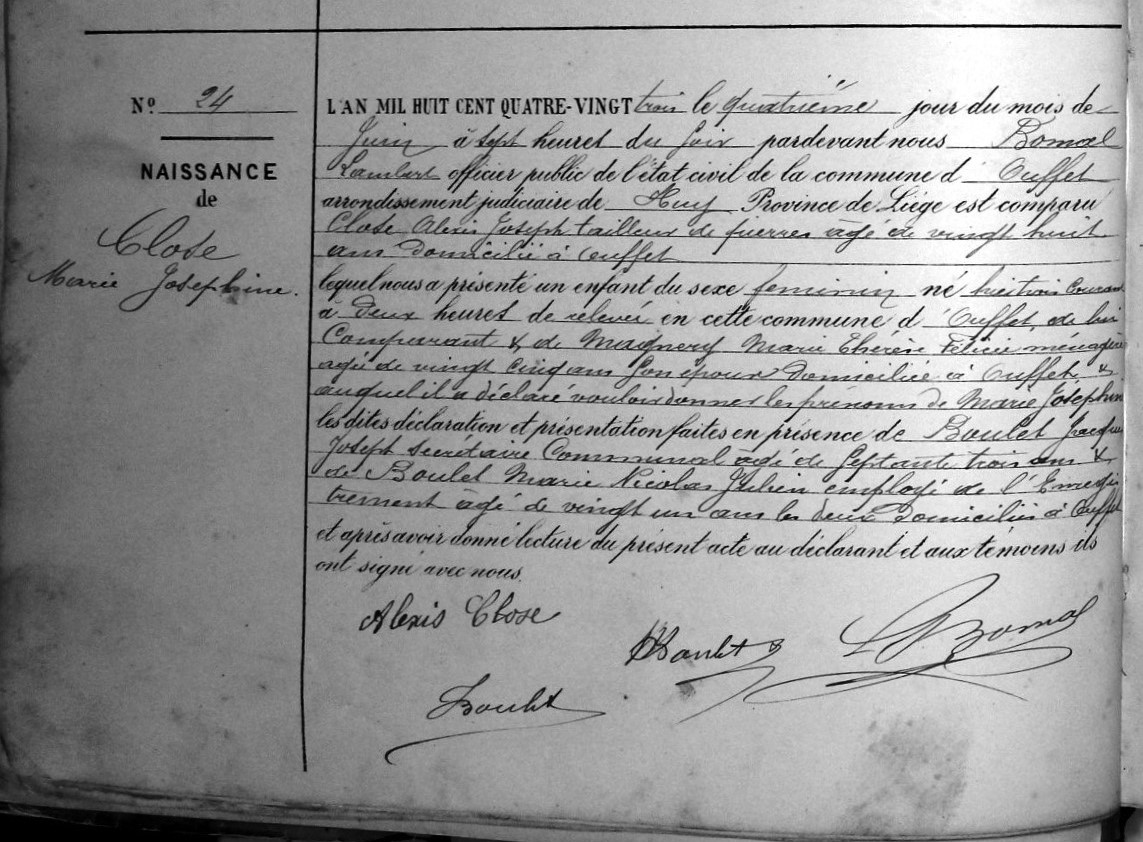 N° 24
NAISSANCE
de
Close
Marie Josephine.
L'AN MIL HUIT CENT QUATRE-VINGT trois le quatrième jour du mois de
Juin à sept heures du soir pardevant nous Bomal
Lambert officier public de l'état civil de la commune d Ouffet
arrondissement judiciaire de Huy Province de Liége est comparu
Close Alexis Joseph tailleur de pierres âgé de vingt huit
ans domicilié à Ouffet
lequel nous a présenté un enfant du sexe feminin né hier trois Courant
à deux heures de relevée en cette commune d'Ouffet, de lui
Comparant & de Magnery Marie Thérèse Félicie ménagère
agée de vingt cinq ans son epouse domiciliée à Ouffet &
auquel il a déclaré vouloir donner les prénoms de Marie Joséphine
les dites déclaration et présentation faites en présence de Boulet Jacques
Joseph Secrétaire Communal âgé de septante trois ans &
de Boulet Marie Nicolas Julien employé de l'Enregis
trement âgé de vingt un ans les deux domiciliés à Ouffet
et après avoir donné lecture du présent acte au déclarant et aux témoins ils
ont signé avec nous.
Alexis Close
Boulet
L Bomal
Boulet